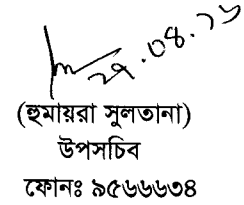 ২৭.০৪.১৬
(হুমায়রা সুলতানা)
উপসচিব
ফোনঃ ৯৫৬৬৬৩৪